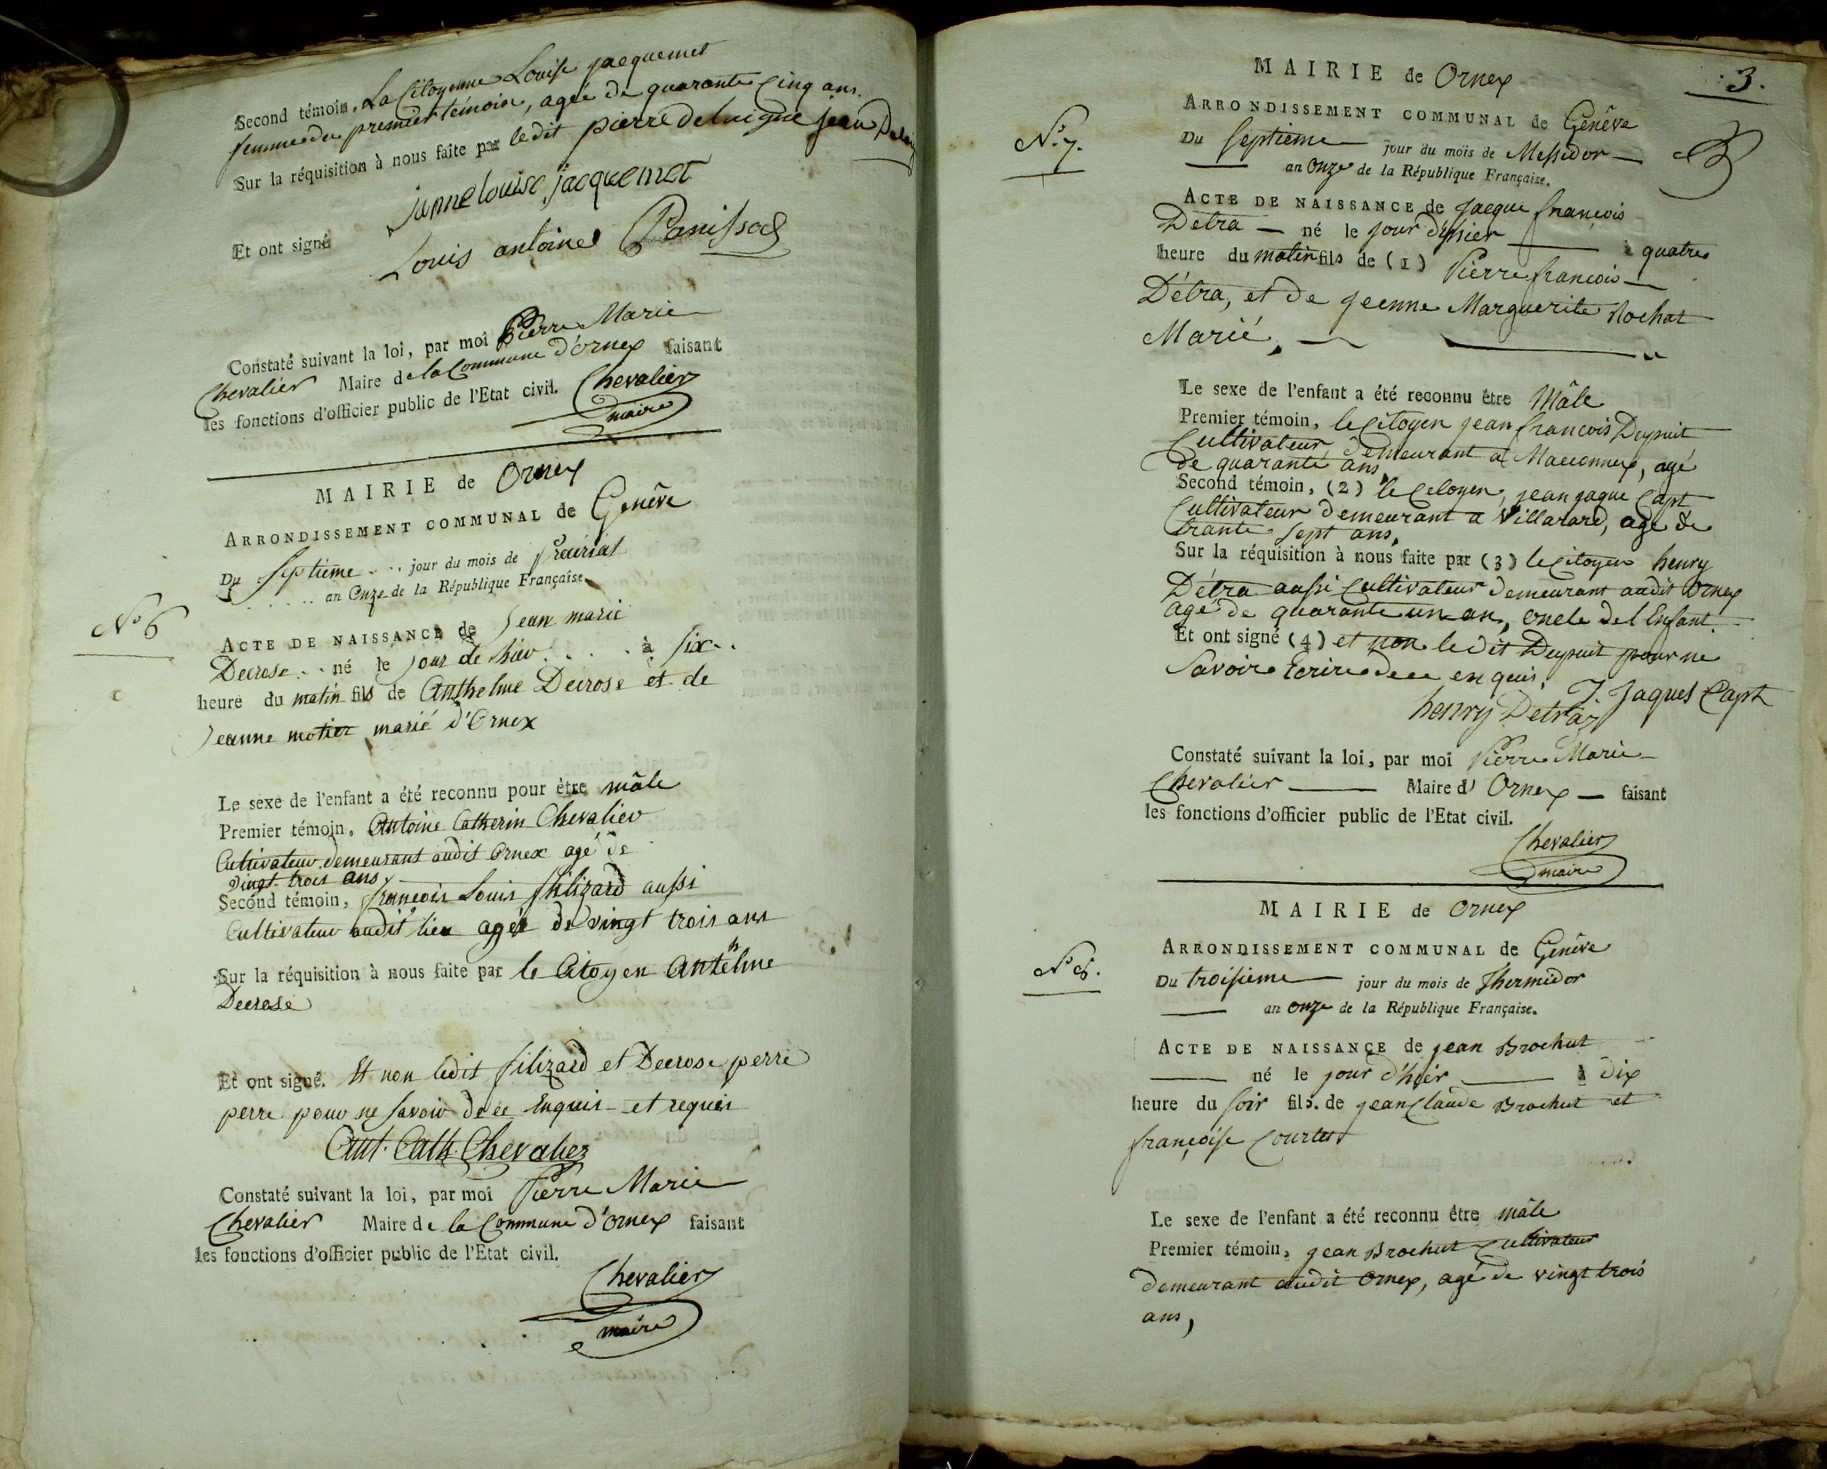 Second témoin, La Citoyenne Louise jacquemet
femme du premier témoin, agée de quarante Cinq ans.
Sur la réquisition à nous faite par ledit pierre deluigne jean
janne louise jacquemet
Et ont signé
Louis antoine Panissod
Constaté suivant la loi, par moi Pierre Marie
Chevalier Maire de la Commune d'Ornex faisant
les fonctions d'officier public de l'Etat civil. Chevalier
maire
MAIRIE de Ornex
ARRONDISSEMENT COMMUNAL de Genêve
Du Septieme jour du mois de prairial
an Onze de la République Française.
N° 6
ACTE DE NAISSANCE de Jean marie
Decrose né le jour de hier à six
heure du matin fils de Anthelme Decrose et de
Jeanne motier marié d'Ornex
Le sexe de l'enfant a été reconnu pour être mâle
Premier témoin, Antoine Catherin Chevalier
Cultivateur demeurant audit Ornex agé de
vingt trois ans
Second témoin, francois Louis filizard aussi
Cultivateur audit lieu agée de vingt trois ans
Sur la réquisition à nous faite par le Citoyen Antelme
h
Decrose
Et ont signé. Et non ledit filizard et Decrose perre
perre pour ne savoir de ce Enquis et requis
Ant. Cath. Chevalier
Constaté suivant la loi, par moi Pierre Marie
Chevalier Maire de la Commune d'Ornex faisant
les fonctions d'officier public de l'Etat civil.
Chevalier
maire
MAIRIE de Ornex
3.
ARRONDISSEMENT COMMUNAL de Genêve
N° 7.
Du Septieme jour du mois de Messidor
an Onze de la République Française.
ACTE DE NAISSANCE de Jacque françois
Détra né le jour d'hier à quatre
heure du matin fils de (1) Pierre francois
Détra, et de jeenne Marguerite Rochat
Marié,
Le sexe de l'enfant a été reconnu être Mâle
Premier témoin, le Citoyen jean francois Deprait
Cultivateur demeurant a Maconnex, agé
de quarante ans,
Second témoin, (2) le Citoyen, jean jaque Capt
Cultivateur demeurant a Villarard, agé de
trante sept ans,
Sur la réquisition à nous faite par (3) le Citoyen henry
Détra aussi Cultivateur demeurant audit Ornex
agé de quarante un an, oncle de l'Enfant.
Et ont signé (4) et non le dit Depruit pour ne
savoir Ecrire de ce enquis.
henry Detraz J. Jaques Capt
Constaté suivant la loi, par moi Pierre Marie
Chevalier Maire d' Ornex faisant
les fonctions d'officier public de l'Etat civil.
Chevalier
maire
MAIRIE de Ornex
ARRONDISSEMENT COMMUNAL de Genêve
N° 8.
Du troisieme jour du mois de Thermidor
an onze de la République Française.
ACTE DE NAISSANCE de jean Brochut
né le jour d'hier à dix
heure du soir fils. de jean Claude Brochut et
françoise Courtet
Le sexe de l'enfant a été reconnu être mâle
Premier témoin, jean Brochut Cultivateur
demeurant audit Ornex, agé de vingt trois
ans,